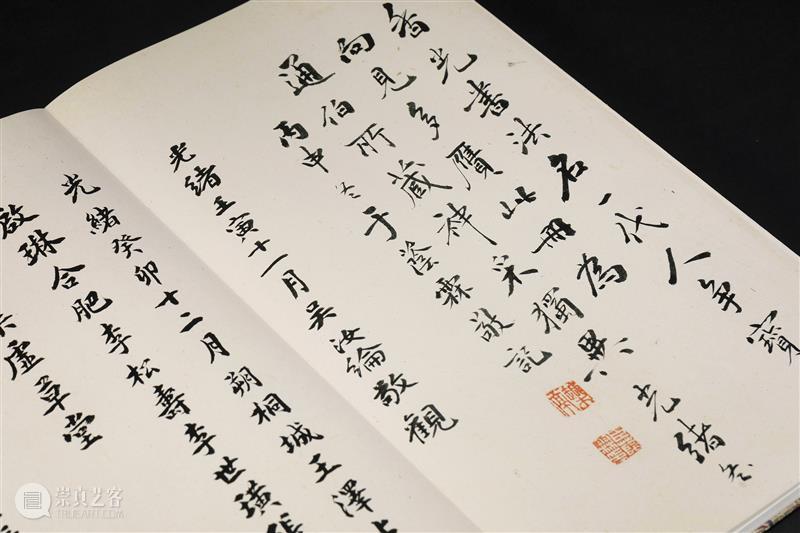 香光書法名一代人争寶
向見多贋此冊為
通伯所藏神采獨異光緒
丙申冬于蔭霖敬記
光緒壬寅十一月吳汝綸敬觀
光緒癸卯十二月朔桐城王澤
啟琳合肥李松壽李世璜
虛草堂
崇真艺客
TRUEART.COM